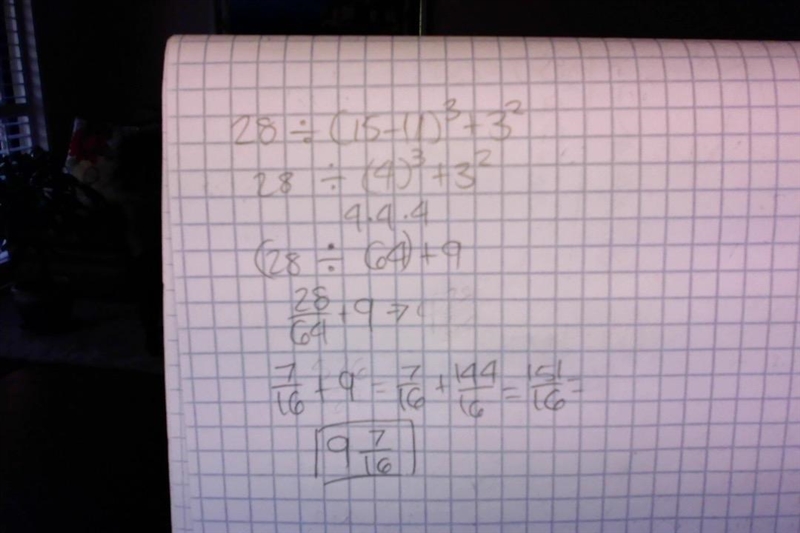 28 ÷ (15-11)³ + 3²
28 ÷ (4)³ + 3²
4·4·4
(28 ÷ (64) + 9
28/64 + 9 →
7/16 + 9 = 7/16 + 144/16 = 151/16 =
9 7/16